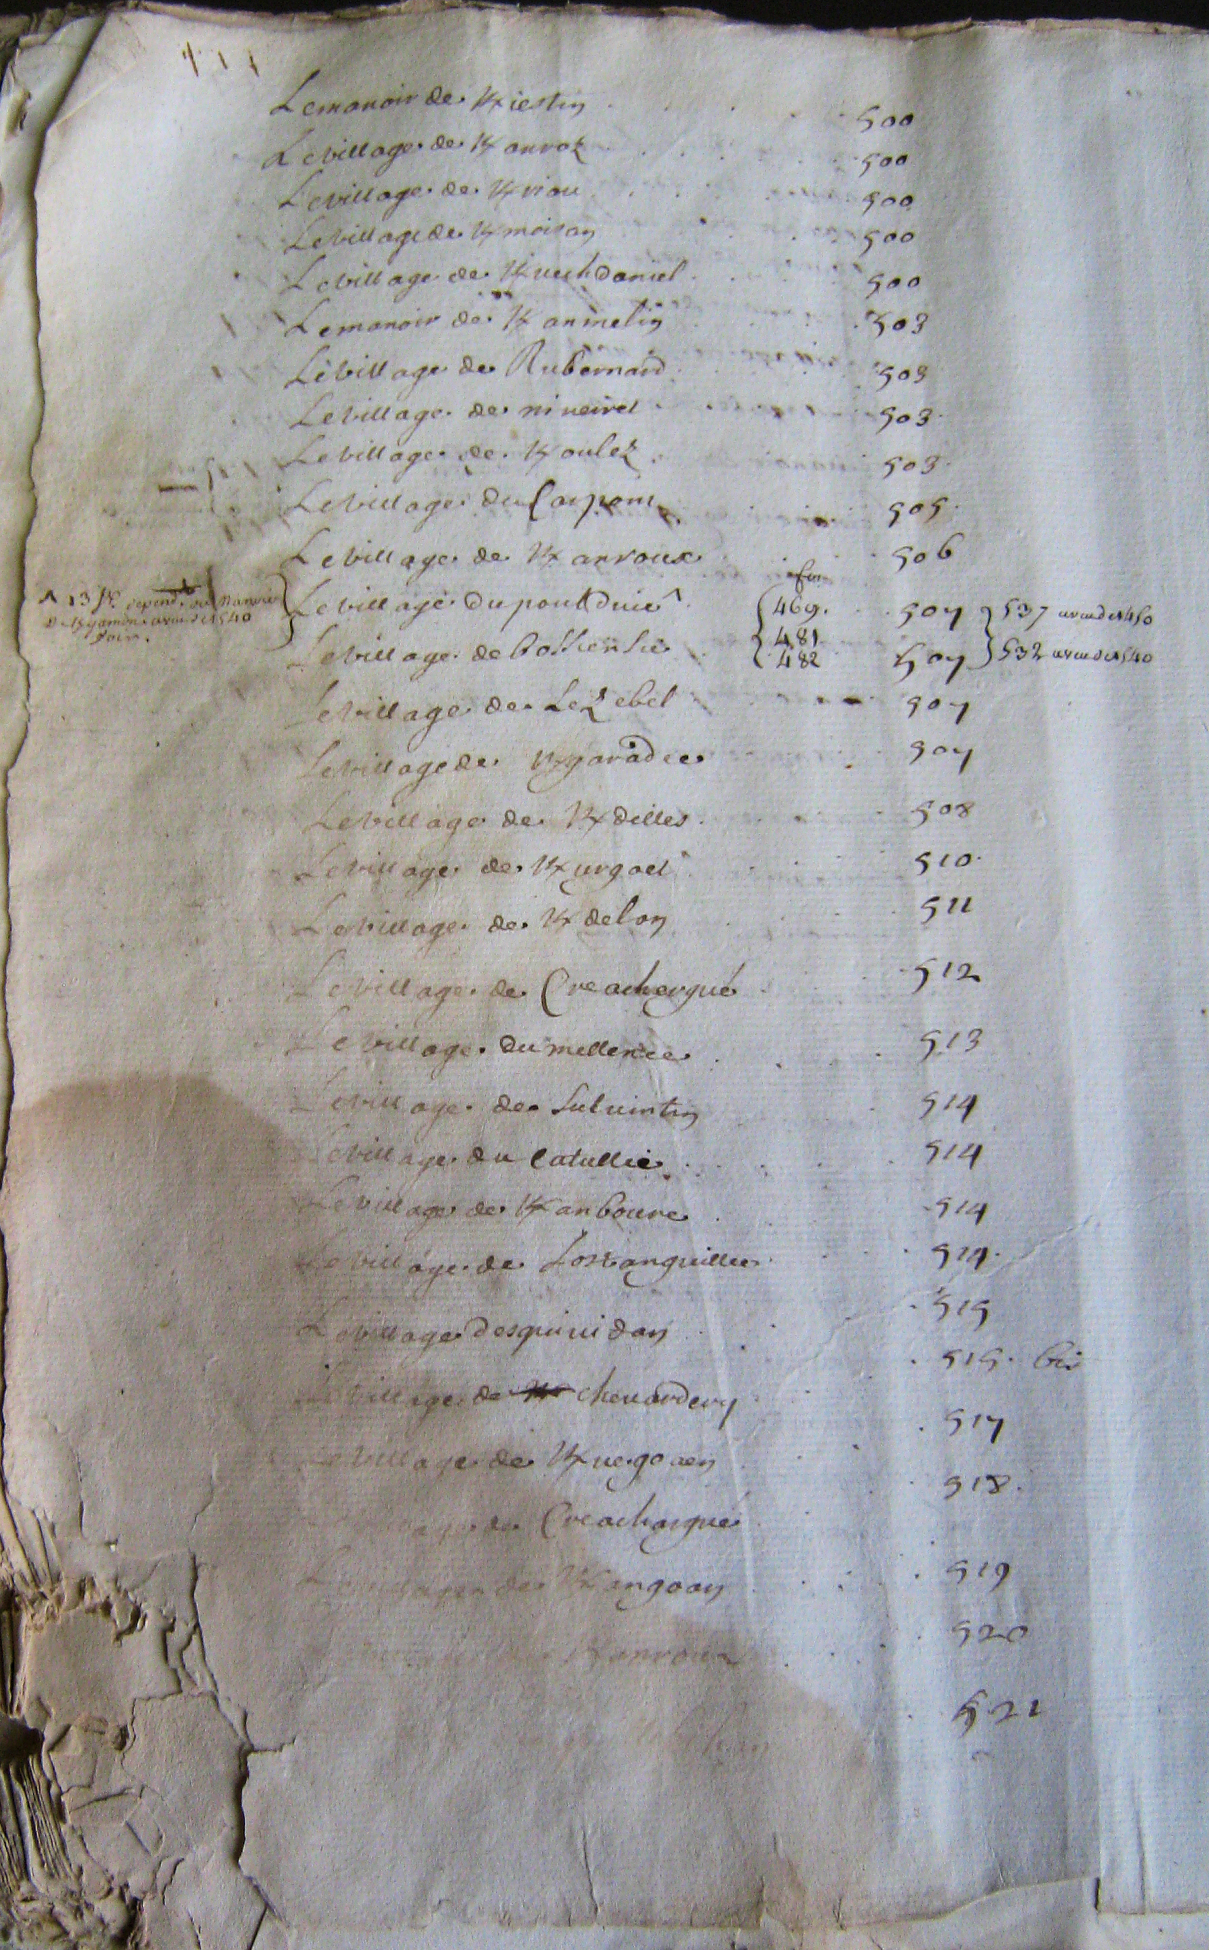 Le manoir de Kiestin 500
Le village de Kanroz 500
Le village de Kriou 500
Le village de Kmoisan 500
Le village de Kuech daniel 500
Le manoir de Kanmelin 503
Le village de Rubernard 503
Le village de niueirel 503
Le village de Koulez 503
Le village du Carpont 505
Le village de Kanroux 506
Le village du pont 469. 507 } 537 aveu de 1450
Le village de 481 482 507 } 532 aveu de 1540
Le village de Lezebel 507
Le village de Kgaradec 507
Le village de Kdilles 508
Le village de Kurgoet 510
Le village de Kdelan 511
Le village de Creachergué 512
Le village du mellenec 513
Le village de Luluintin 514
Le village du Catullié 514
Le village de Kanboure 514
Le village de 514
Le village desquiuidan 515
Le village de cheuardery 515. bis
Le village de Kuegoaen 517
village de Creachargué 518
Le village de Kangoan 519
Kanroux 520
521